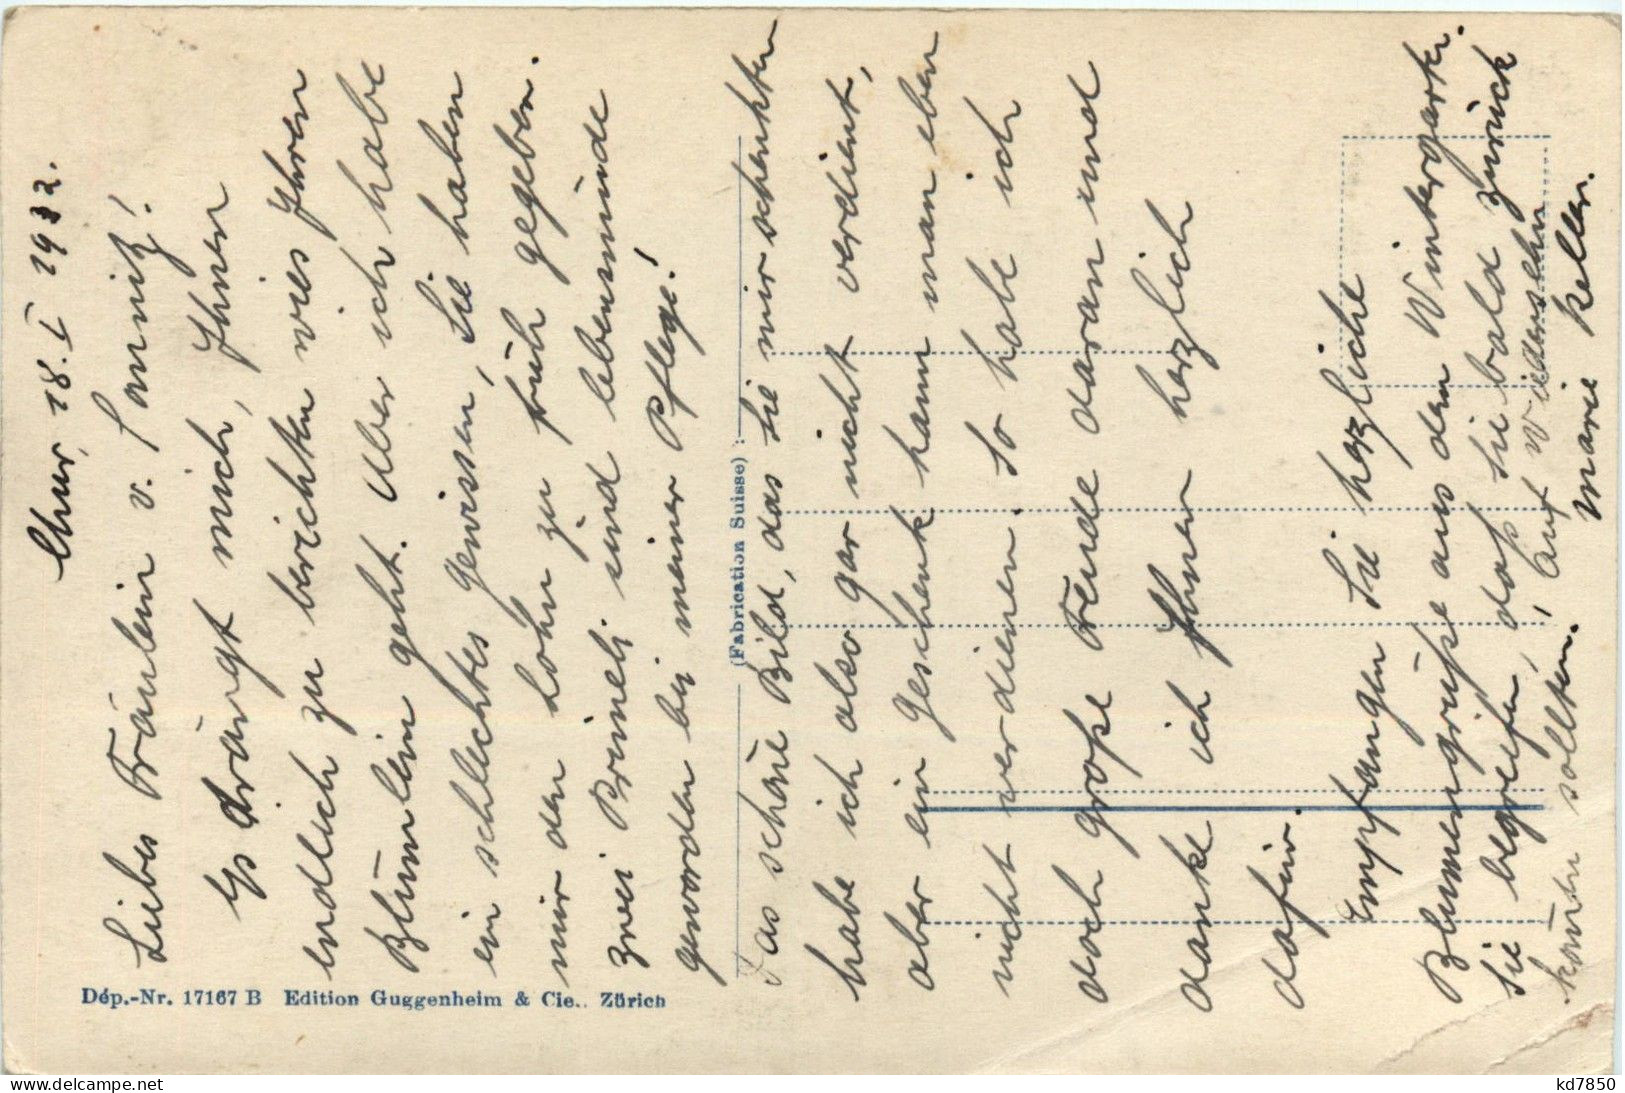 Chur, 18. I 1932.
Liebes Fräulein v. Sanitz!
Es drängt mich, Ihnen
endlich zu berichten wies Ihren
Blümlein geht. Aber ich habe
ein schlechtes Gewissen, Sie haben
mir den Lohn zu früh gegeben.
zwei Primeli sind lebensmüde
geworden bei meiner Pflege!
Das schöne Bild, das Sie mir schenkten
habe ich also gar nicht verdient,
aber ein Geschenk kann man eben
nicht verdienen. So habe ich
doch große Freude daran und
danke ich Ihnen herzlich
dafür.
Empfangen Sie herzliche
Blumengrüße aus dem Wintergarten.
Sie begreifen, daß Sie bald zurück
kommen sollten. Auf Wiedersehn
Marie Keller.
(Fabrication Suisse)
Dép.-Nr. 17167 B Edition Guggenheim & Cie., Zürich
kd7850